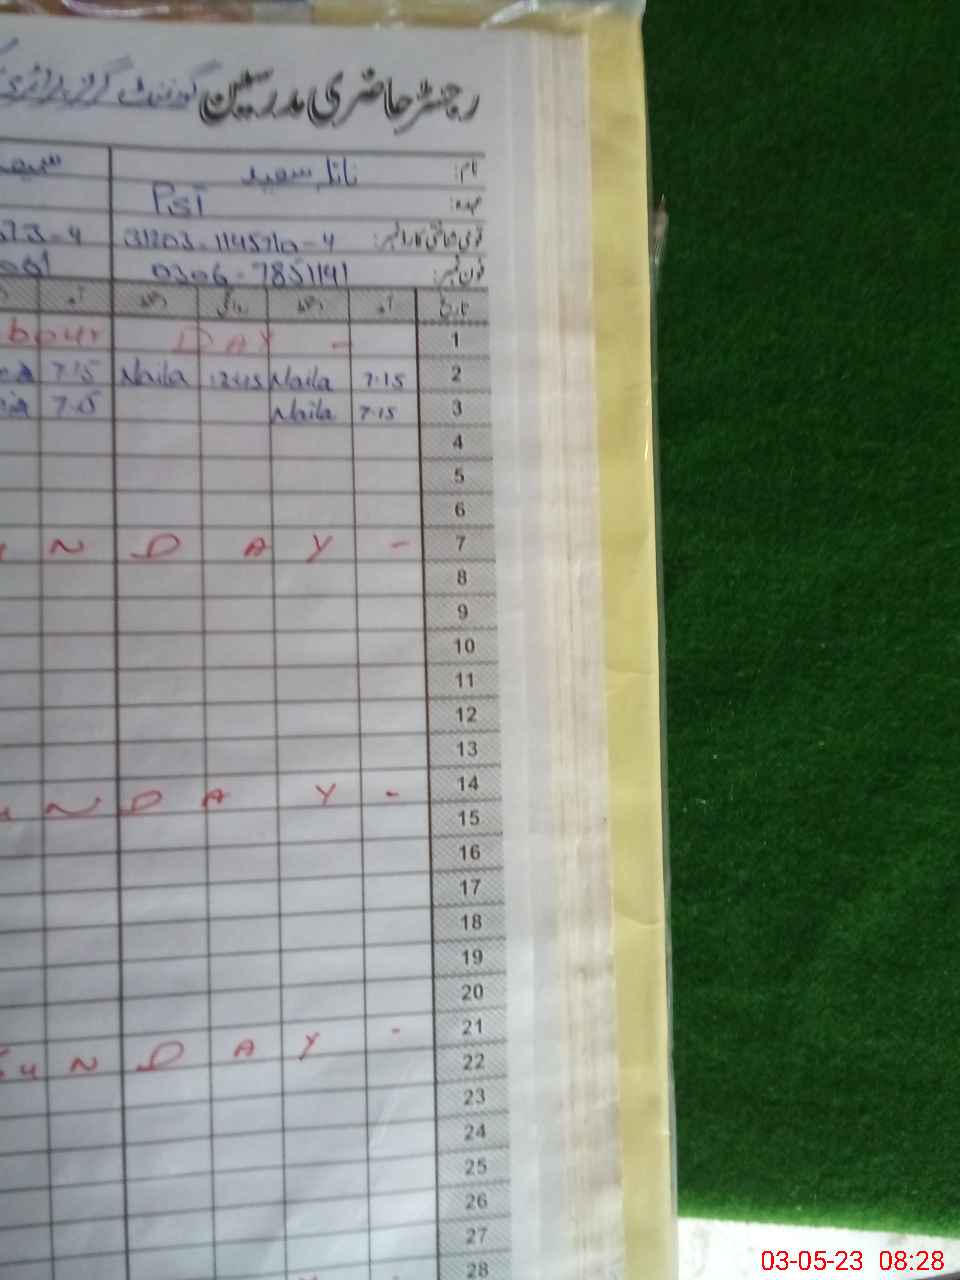 رجسٹر حاضری مدرسین گورنمنٹ گرلز پرائمری
نام: نائلہ سعید
عہدہ: PST
قومی شناختی کارڈ نمبر: 4
فون نمبر: 0306-7851191
تاریخ آمد دستخط روانگی دستخط آمد
1 - DAY bour
2 7.15 Naila 12:45 Naila 7.15
3 7.15 Naila 7.15
4
5
6
7 - Y A D N
8
9
10
11
12
13
14 - Y A D N u
15
16
17
18
19
20
21 - Y A D N u S
22
23
24
25
26
27
28
03-05-23 08:28